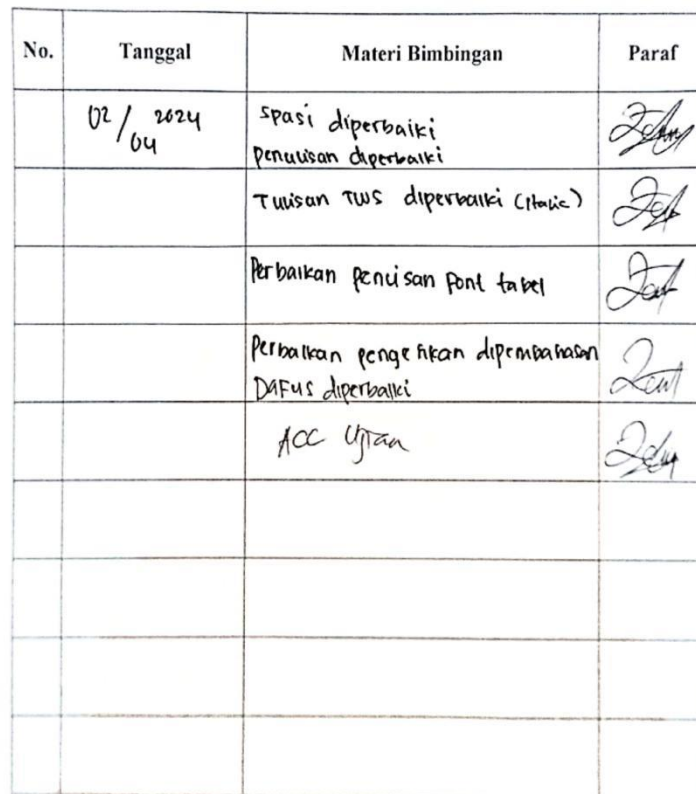 No. Tanggal Materi Bimbingan Paraf
02/04 2024 Spasi diperbaiki
penulisan diperbaiki
Tulisan TWS diperbaiki (Italic)
Perbaikan penulisan Font tabel
Perbaikan pengetikan dipembahasan
DAFUS diperbaiki
ACC Ujian